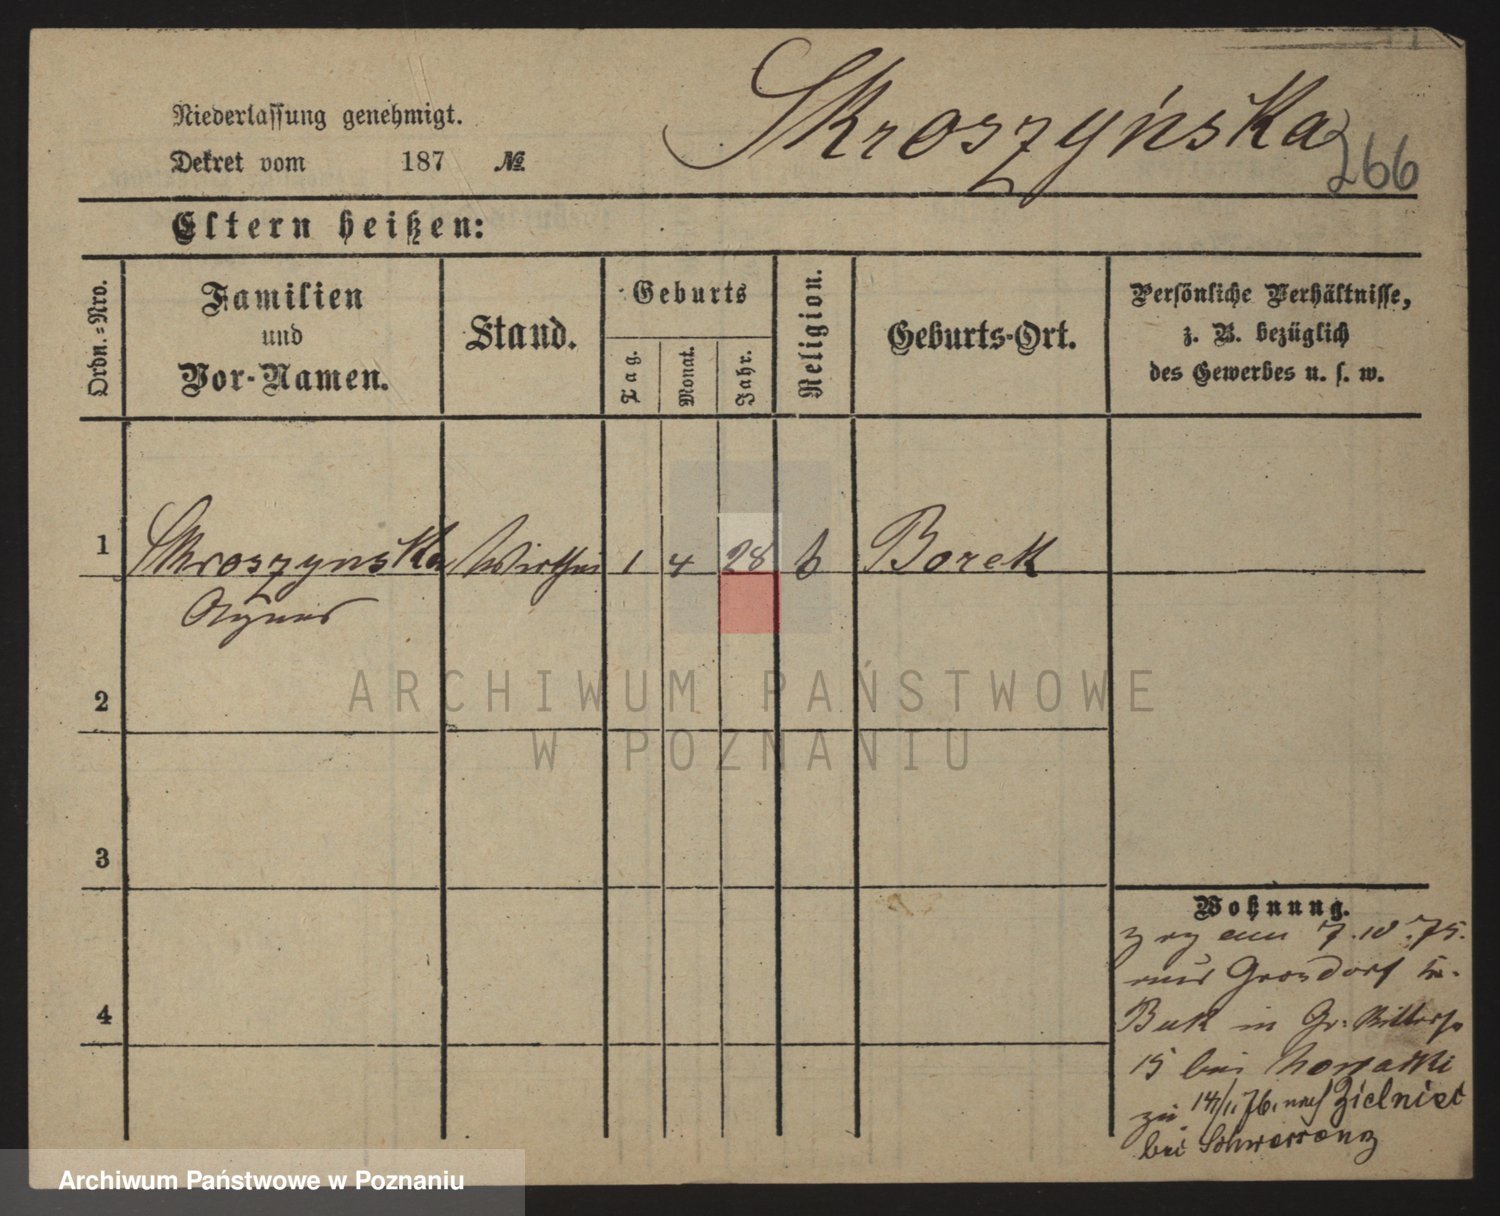 Niederlassung genehmigt.
Skroszyńska
266
Dekret vom 187 №
Eltern heißen:
Ordn.=Nro.
Familien
und
Vor-Namen.
Stand.
Geburts
Tag.
Monat.
Jahr.
Religion.
Geburts-Ort.
Persönliche Verhältnisse,
z. B. bezüglich
des Gewerbes u. s. w.
1 Skroszynska Wirthin 1 4 28 k Borek
Agnes
2
ARCHIWUM PAŃSTWOWE
W POZNANIU
3
4
Wohnung.
zog am 7.10.75.
aus Grosdorf
Buk in Gr: Ritterst
15 bei Nowatki
zu 14/1.76. nach Zielniet
bei Schwersenz
Archiwum Państwowe w Poznaniu